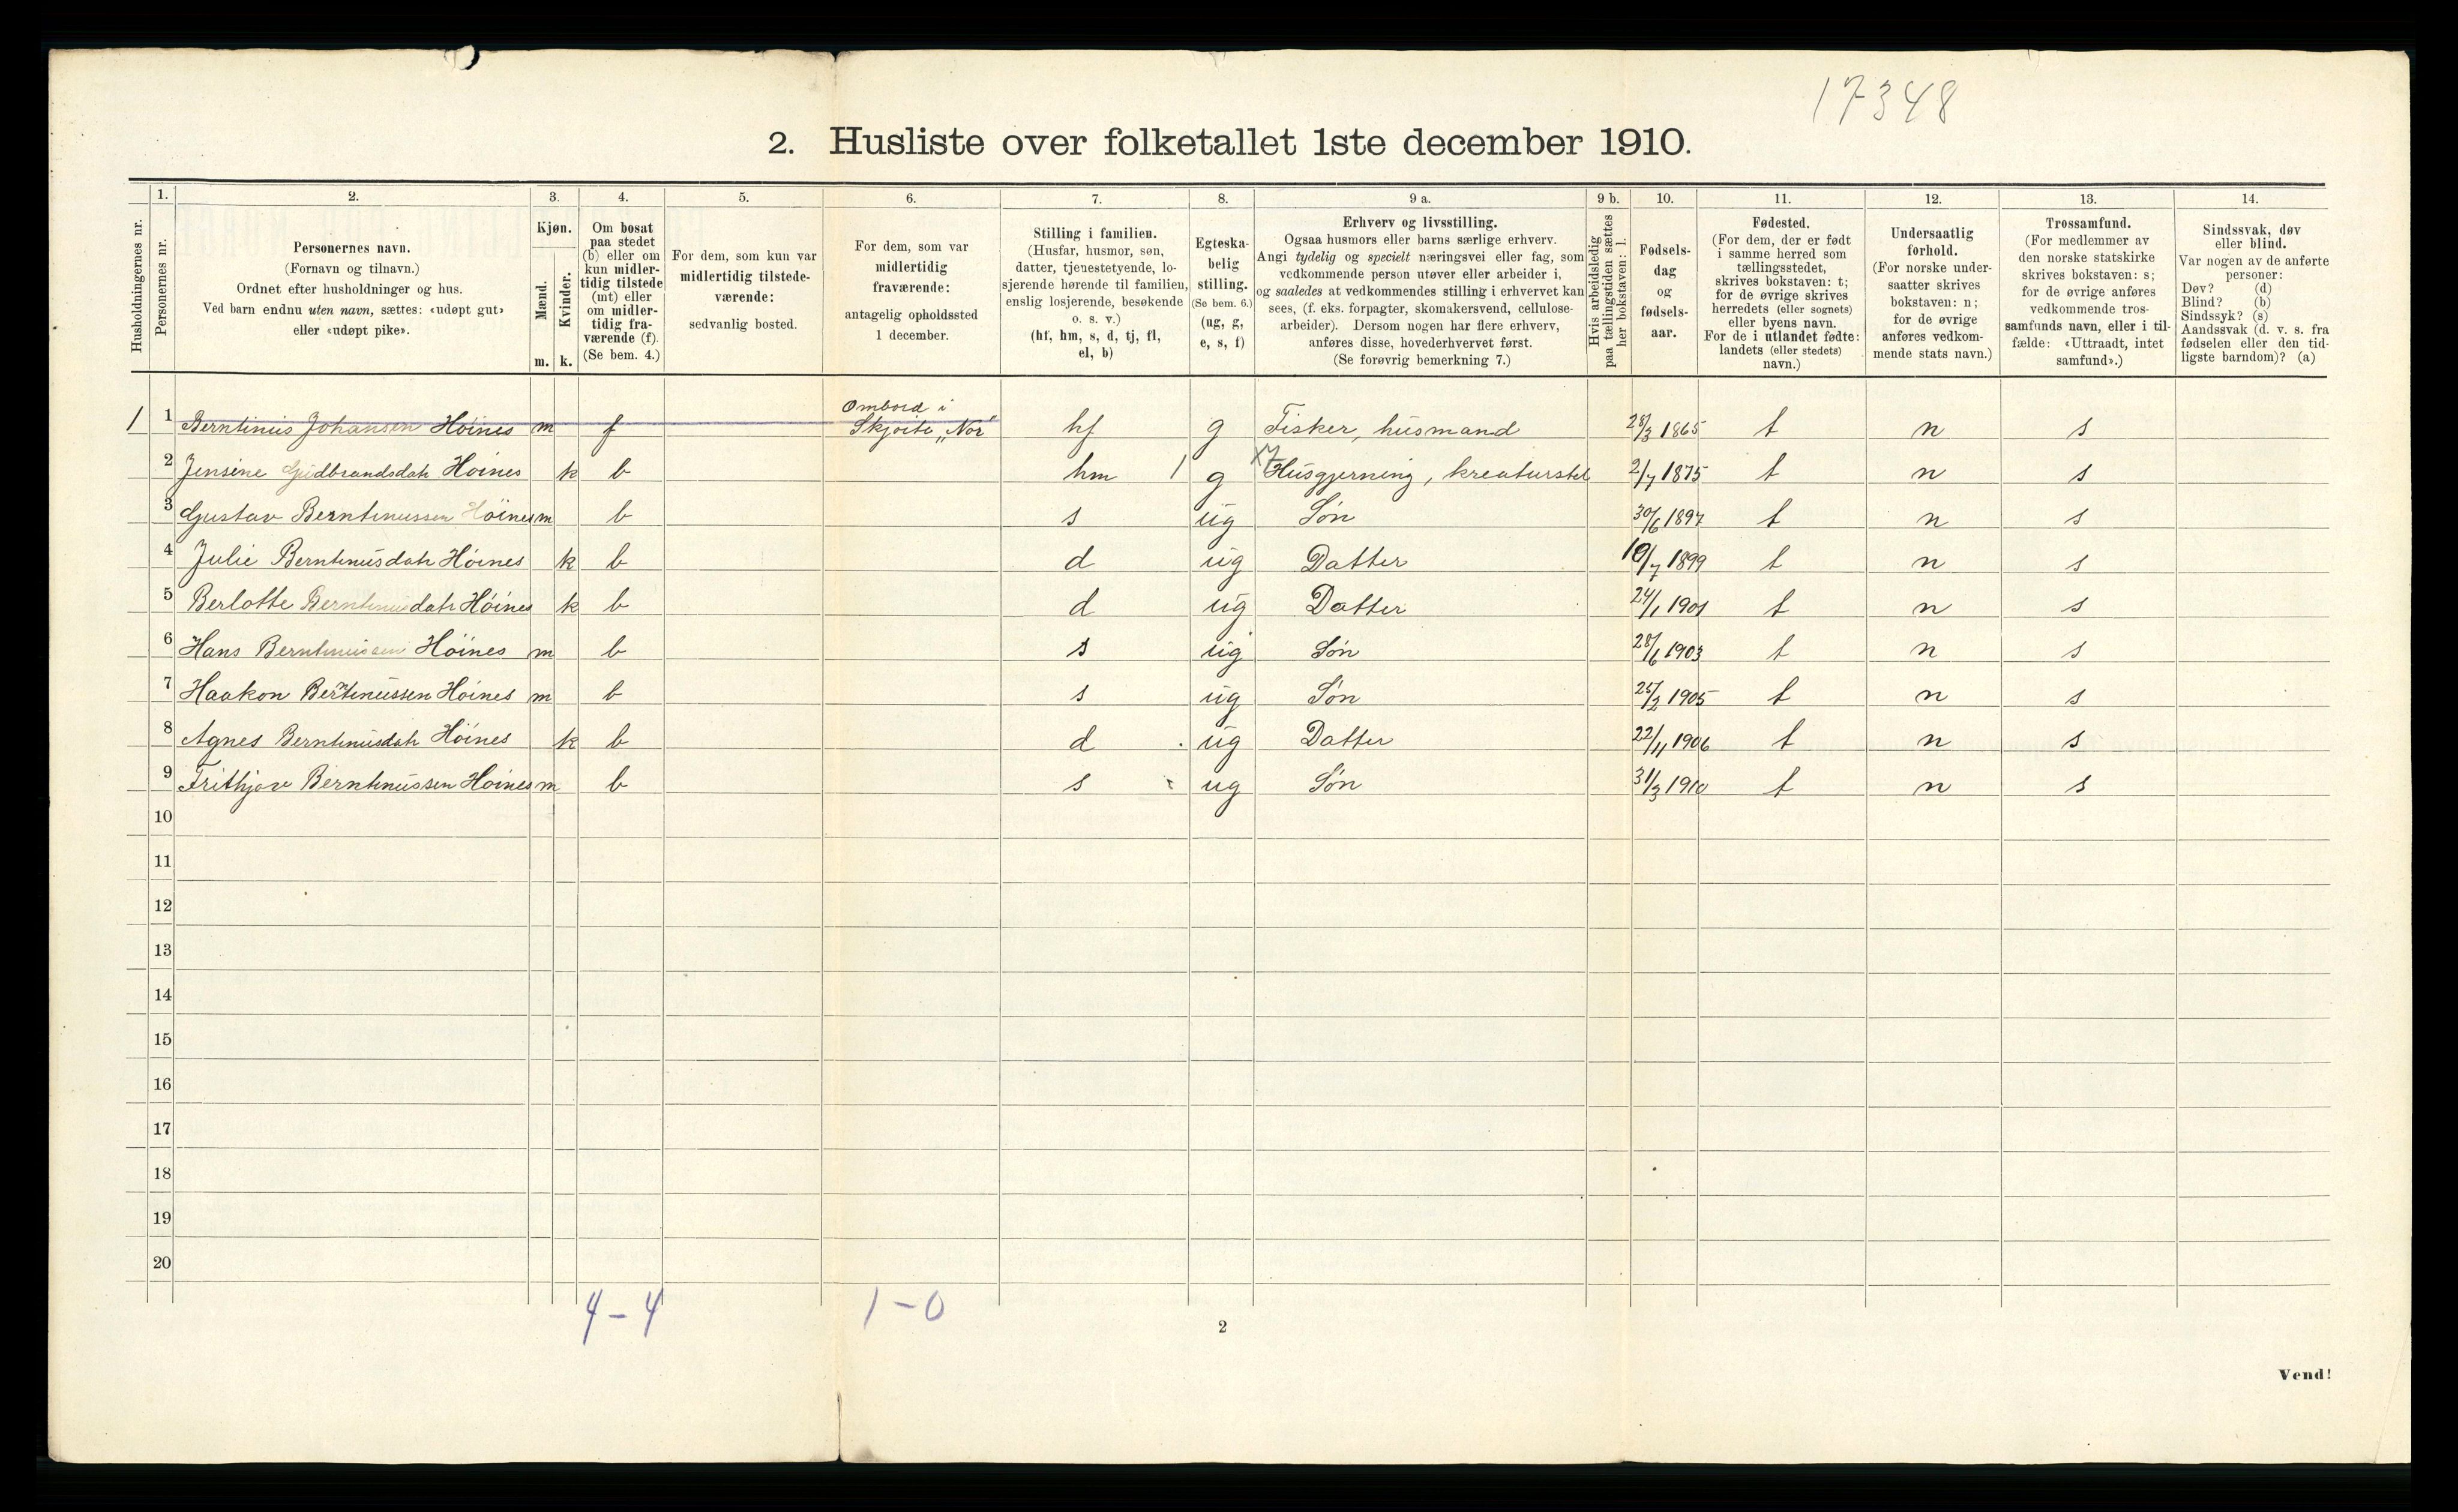 17348
2. Husliste over folketallet 1ste december 1910.
Husholdningernes nr.
1.
Personernes nr.
2.
Personernes navn.
(Fornavn og tilnavn.)
Ordnet efter husholdninger og hus.
Ved barn endnu uten navn, sættes: «udøpt gut»
eller «udøpt pike».
3.
Kjøn.
Mænd.
Kvinder.
m. k.
4.
Om bosat
paa stedet
(b) eller om
kun midler-
tidig tilstede
(mt) eller
om midler-
tidig fra-
værende (f).
(Se bem. 4.)
5.
For dem, som kun var
midlertidig tilstede-
værende:
sedvanlig bosted.
6.
For dem, som var
midlertidig
fraværende:
antagelig opholdssted
1 december.
7.
Stilling i familien.
(Husfar, husmor, søn,
datter, tjenestetyende, lo-
sjerende hørende til familien,
enslig losjerende, besøkende
o. s. v.)
(hf, hm, s, d, tj, fl,
el, b)
8.
Egteska-
belig
stilling.
(Se bem. 6.)
(ug, g,
e, s, f)
9 a.
Erhverv og livsstilling.
Ogsaa husmors eller barns særlige erhverv.
Angi tydelig og specielt næringsvei eller fag, som
vedkommende person utøver eller arbeider i,
og saaledes at vedkommendes stilling i erhvervet kan
sees, (f. eks. forpagter, skomakersvend, cellulose-
arbeider). Dersom nogen har flere erhverv,
anføres disse, hovederhvervet først.
(Se forøvrig bemerkning 7.)
9 b.
Hvis arbeidsledig
paa tællingstiden sættes
her bokstaven: l.
10.
Fødsels-
dag
og
fødsels-
aar.
11.
Fødested.
(For dem, der er født
i samme herred som
tællingsstedet,
skrives bokstaven: t;
for de øvrige skrives
herredets (eller sognets)
eller byens navn.
For de i utlandet fødte:
landets (eller stedets)
navn.)
12.
Undersaatlig
forhold.
(For norske under-
saatter skrives
bokstaven: n;
for de øvrige
anføres vedkom-
mende stats navn.)
13.
Trossamfund.
(For medlemmer av
den norske statskirke
skrives bokstaven: s;
for de øvrige anføres
vedkommende tros-
samfunds navn, eller i til-
fælde: «Uttraadt, intet
samfund».)
14.
Sindssvak, døv
eller blind.
Var nogen av de anførte
personer:
Døv? (d)
Blind? (b)
Sindssyk? (s)
Aandssvak (d. v. s. fra
fødselen eller den tid-
ligste barndom)? (a)
1 1 Berntinus Johansen Höines m f Ombord i Skjøite „Nor" hf g Fisker, husmand 28/3 1865 t n s
2 Jensine Gudbrandsdatr Höines k b hm 1 g Husgjerning, kreaturstel 2/7 1875 t n s
3 Gustav Berntinussen Höines m b s ug Søn 30/6 1897 t n s
4 Julie Berntinusdatr Höines k b d ug Datter 10/7 1899 t n s
5 Berlotte Berntinusdatr Höines k b d ug Datter 24/1 1901 t n s
6 Hans Berntinussen Höines m b s ug Søn 28/6 1903 t n s
7 Haakon Berntinussen Höines m b s ug Søn 25/2 1905 t n s
8 Agnes Berntinusdatr Höines k b d ug Datter 22/11 1906 t n s
9 Frithjov Berntinussen Höines m b s ug Søn 31/3 1910 t n s
10
11
12
13
14
15
16
17
18
19
20
4 - 4 1 - 0
2
Vend!